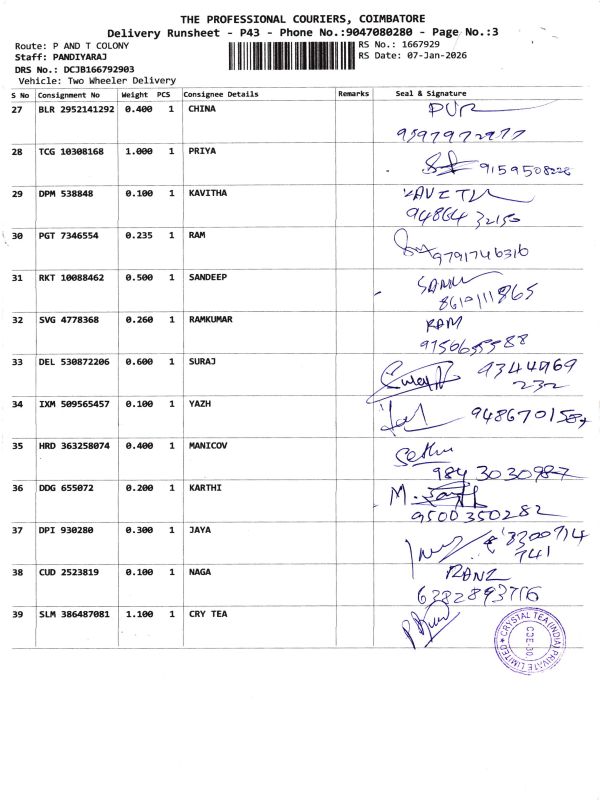 THE PROFESSIONAL COURIERS, COIMBATORE
Delivery Runsheet - P43 - Phone No.:9047080280 - Page No.:3
Route: P AND T COLONY
Staff: PANDIYARAJ
DRS No.: DCJB166792903
Vehicle: Two Wheeler Delivery
RS No.: 1667929
RS Date: 07-Jan-2026
S No Consignment No Weight PCS Consignee Details Remarks Seal & Signature
27 BLR 2952141292 0.400 1 CHINA PUR
9597972977
28 TCG 10308168 1.000 1 PRIYA 9159508228
29 DPM 538848 0.100 1 KAVITHA KAVITH
94864 32150
30 PGT 7346554 0.235 1 RAM 9791746316
31 RKT 10088462 0.500 1 SANDEEP
8619111865
32 SVG 4778368 0.260 1 RAMKUMAR RAM
9150655588
33 DEL 530872206 0.600 1 SURAJ Suraj 9344469
232
34 IXM 509565457 0.100 1 YAZH
35 HRD 363258074 0.400 1 MANICOV Sethu
984 3030987
36 DDG 655072 0.200 1 KARTHI M.
9500350282
37 DPI 930280 0.300 1 JAYA
741
38 CUD 2523819 0.100 1 NAGA RANI
6382893716
39 SLM 386487081 1.100 1 CRY TEA
CRYSTAL TEA (INDIA) PRIVATE LIMITED
CJE-30